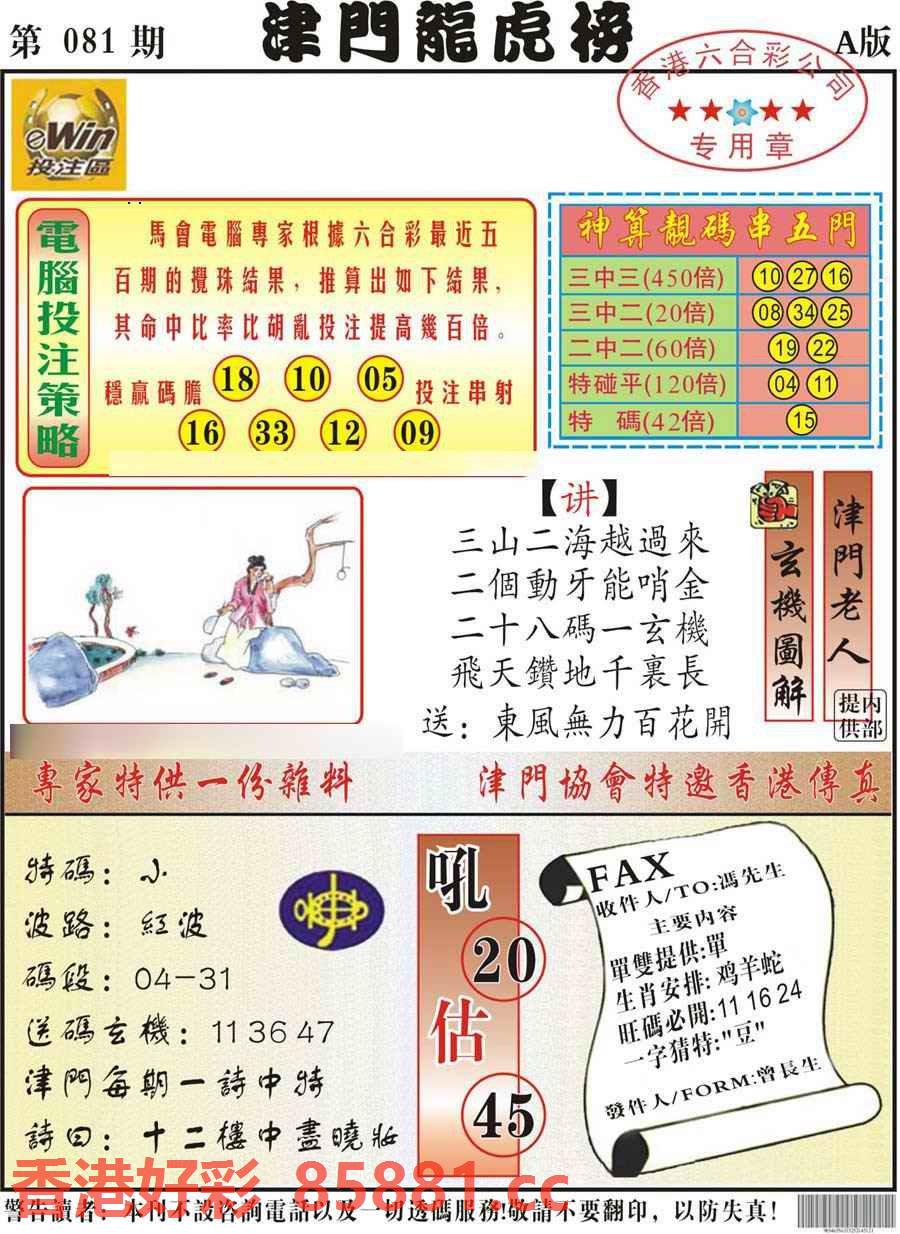 第 081 期
津門龍虎榜
A版
香港六合彩公司
专用章
eWin
投注區
電腦投注策略
馬會電腦專家根據六合彩最近五
百期的攪珠結果，推算出如下結果，
其命中比率比胡亂投注提高幾百倍。
穩贏碼膽 18 10 05 投注串射
16 33 12 09
神算靚碼串五門
三中三(450倍) 10 27 16
三中二(20倍) 08 34 25
二中二(60倍) 19 22
特碰平(120倍) 04 11
特 碼(42倍) 15
【讲】
三山二海越過來
二個動牙能哨金
二十八碼一玄機
飛天鑽地千裏長
送：東風無力百花開
玄機圖解
津門老人
内部提供
專家特供一份雜料
津門協會特邀香港傳真
特碼：小
波路：紅波
碼段：04-31
送碼玄機：11 36 47
津門每期一詩中特
詩曰：十二樓中盡曉妝
吼
20
估
45
FAX
收件人/TO:馮先生
主要内容
單雙提供:單
生肖安排:鸡羊蛇
旺碼必開:11 16 24
一字猜特:"豆"
發件人/FORM:曾長生
香港好彩 85881.cc
警告讀者：本刊不設咨詢電話以及一切透碼服務!敬請不要翻印，以防失真!